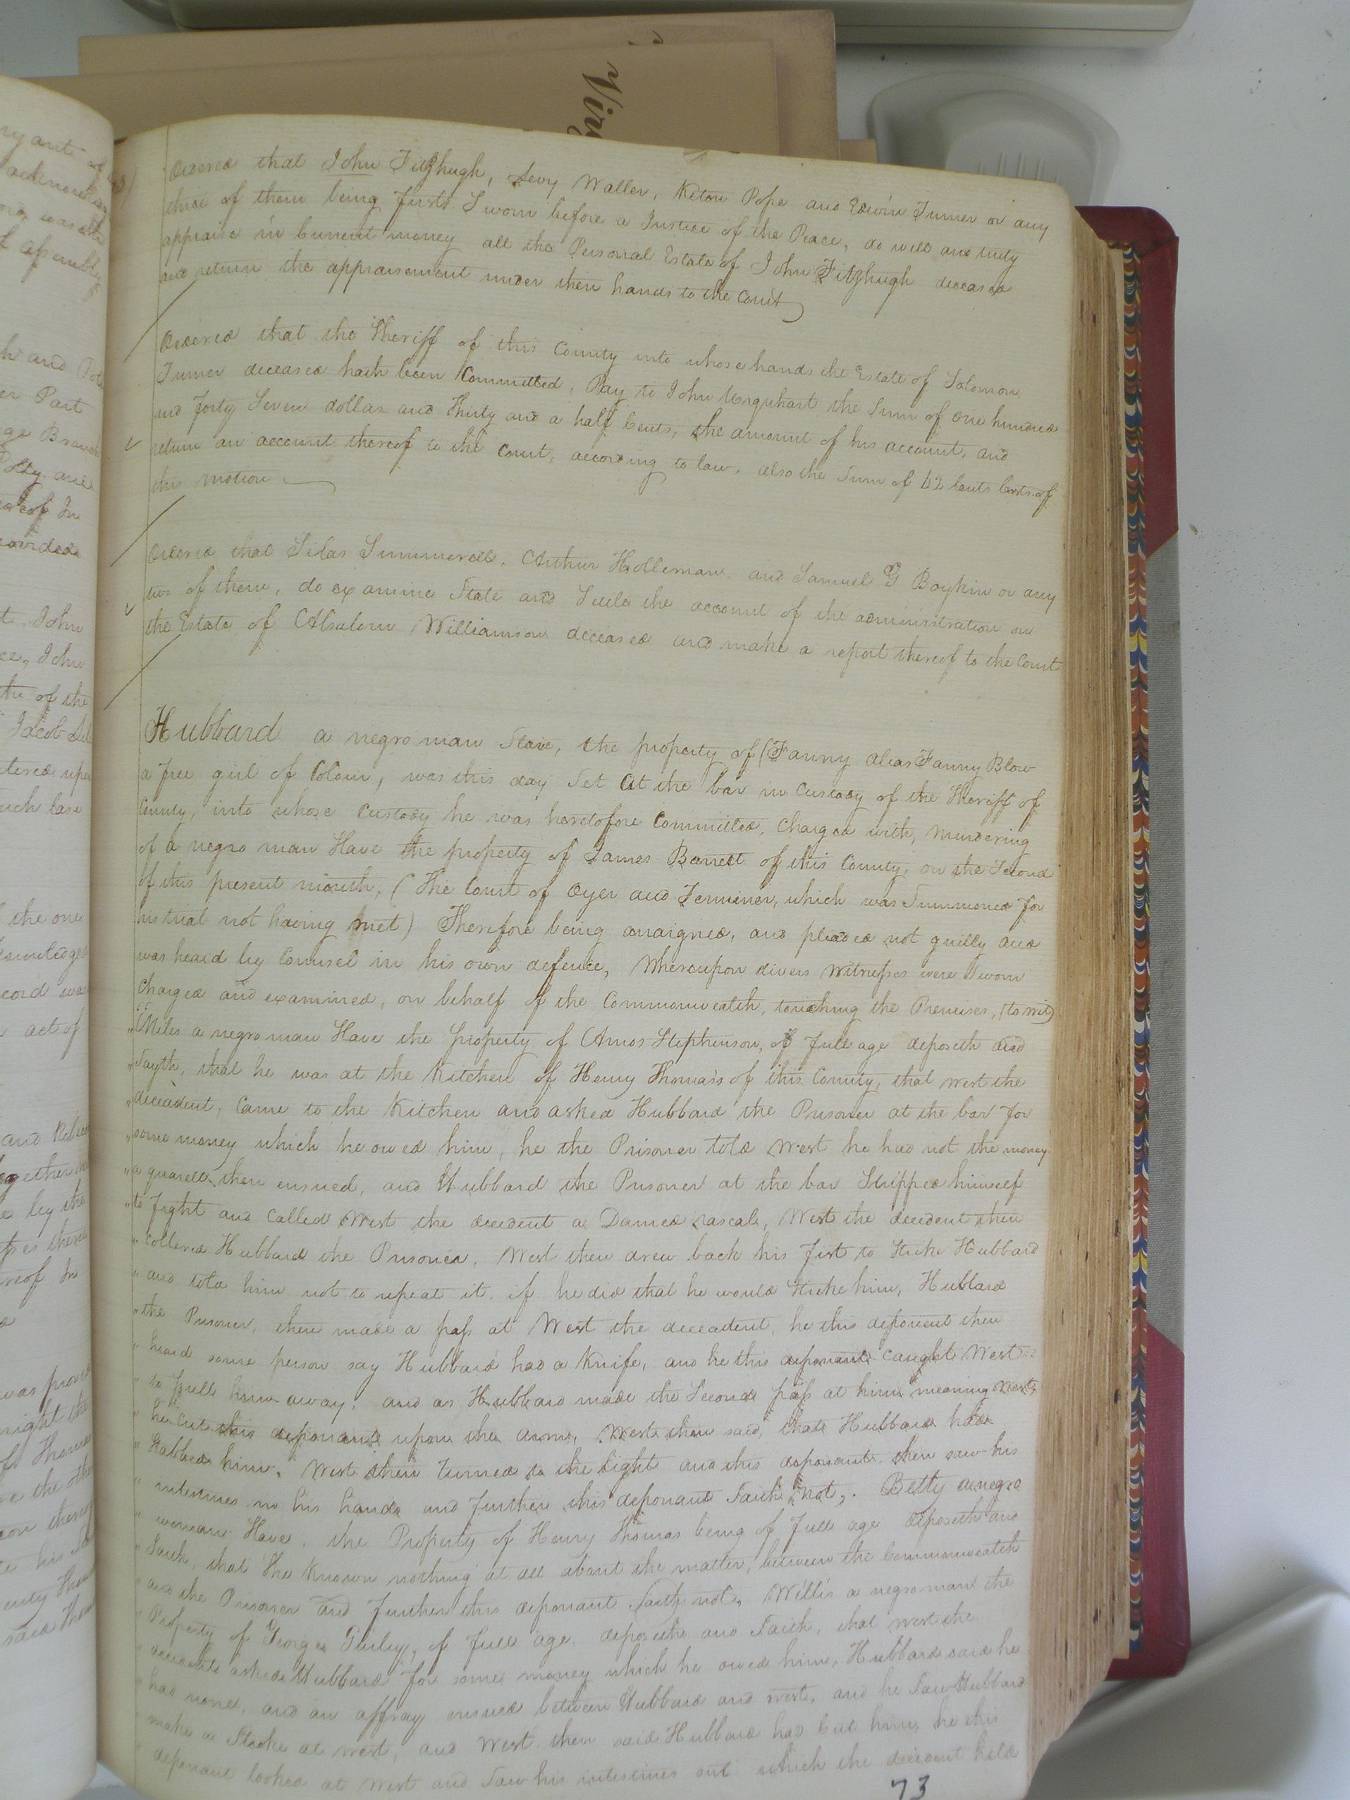 Vir
Ordered that John Fitzhugh, Levy Waller, Keton Pope and Edwin Turner or any
three of them being first Sworn before a Justice of the Peace, do well and truly
appraise in Current money all the Personal Estate of John Fitzhugh deceased
and return the appraisement under their hands to the Court
Ordered that the Sheriff of this County into whose hands the Estate of Solomon
Turner deceased hath been Committed, Pay to John Urquhart the Sum of One hundred
and forty Seven dollars and Thirty and a half Cents, the amount of his account, and
return an account thereof to the Court, according to law. also the Sum of 42 Cents Costs of
this motion
Ordered that Silas Summerell, Arthur Holleman and Samuel G Boykin or any
two of them, do examine State and Settle the account of the administration on
the Estate of Absalom Williamson deceased and make a report thereof to the Court
Hubbard a negro man Slave, the property of (Fanny alias Fanny Blow
a free girl of Colour, was this day Set at the bar in Custody of the Sheriff of
County, into whose Custody he was heretofore Committed, Charged with, Murdering
of a negro man Slave the property of James Barrett of this County, on the Second
of this present month, (The Court of Oyer and Terminer, which was Summoned for
his trial not having met) Therefore being arraigned, and pleaded not guilty and
was heard by Counsel in his own defence, Whereupon divers Witnesses were Sworn
Charged and examined, on behalf of the Commonwealth, touching the Premises, (to wit)
Miles a negro man Slave the Property of Amos Stephenson, of full age deposeth and
Sayth, that he was at the Kitchen of Henry Thomas's of this County, that West the
deceadent, Came to the Kitchen and asked Hubbard the Prisoner at the bar for
some money which he owed him, he the Prisoner told West he had not the money
a quarell then ensued, and Hubbard the Prisoner at the bar Stripped himself
to fight and Called West the decedent a Damed rascale, West the decedent then
Collered Hubbard the Prisoner, West then drew back his fist to Strike Hubbard
and told him not to repeat it, if he did that he would Strike him, Hubbard
the Prisoner, then made a pass at West the deceadent, he this deponent then
heard some person say Hubbard had a Knife, and he this deponant caught West
to pull him away, and as Hubbard made the Second pass at him meaning West,
he Cut this deponant upon the arm, West then said, that Hubbard had
Stabbed him, West then turned to the light and this deponant then saw his
intestines in his hands and further this deponant Saith not,. Betty a negro
woman Slave, the Property of Henry Thomas being of full age deposeth and
Saith, that She Known nothing at all about the matter, between the Commonwealth
and the Prisoner and further this deponant Saith not, Willis a negro man the
Property of George Gurley, of full age, deposeth and Saith, that West the
decedent asked Hubbard for some money which he owed him, Hubbard said he
had none, and an affray ensued between Hubbard and West, and he Saw Hubbard
make a Stroke at West, and West then said Hubbard had Cut him, he this
deponant looked at West and Saw his intestines out which the decedent held
73